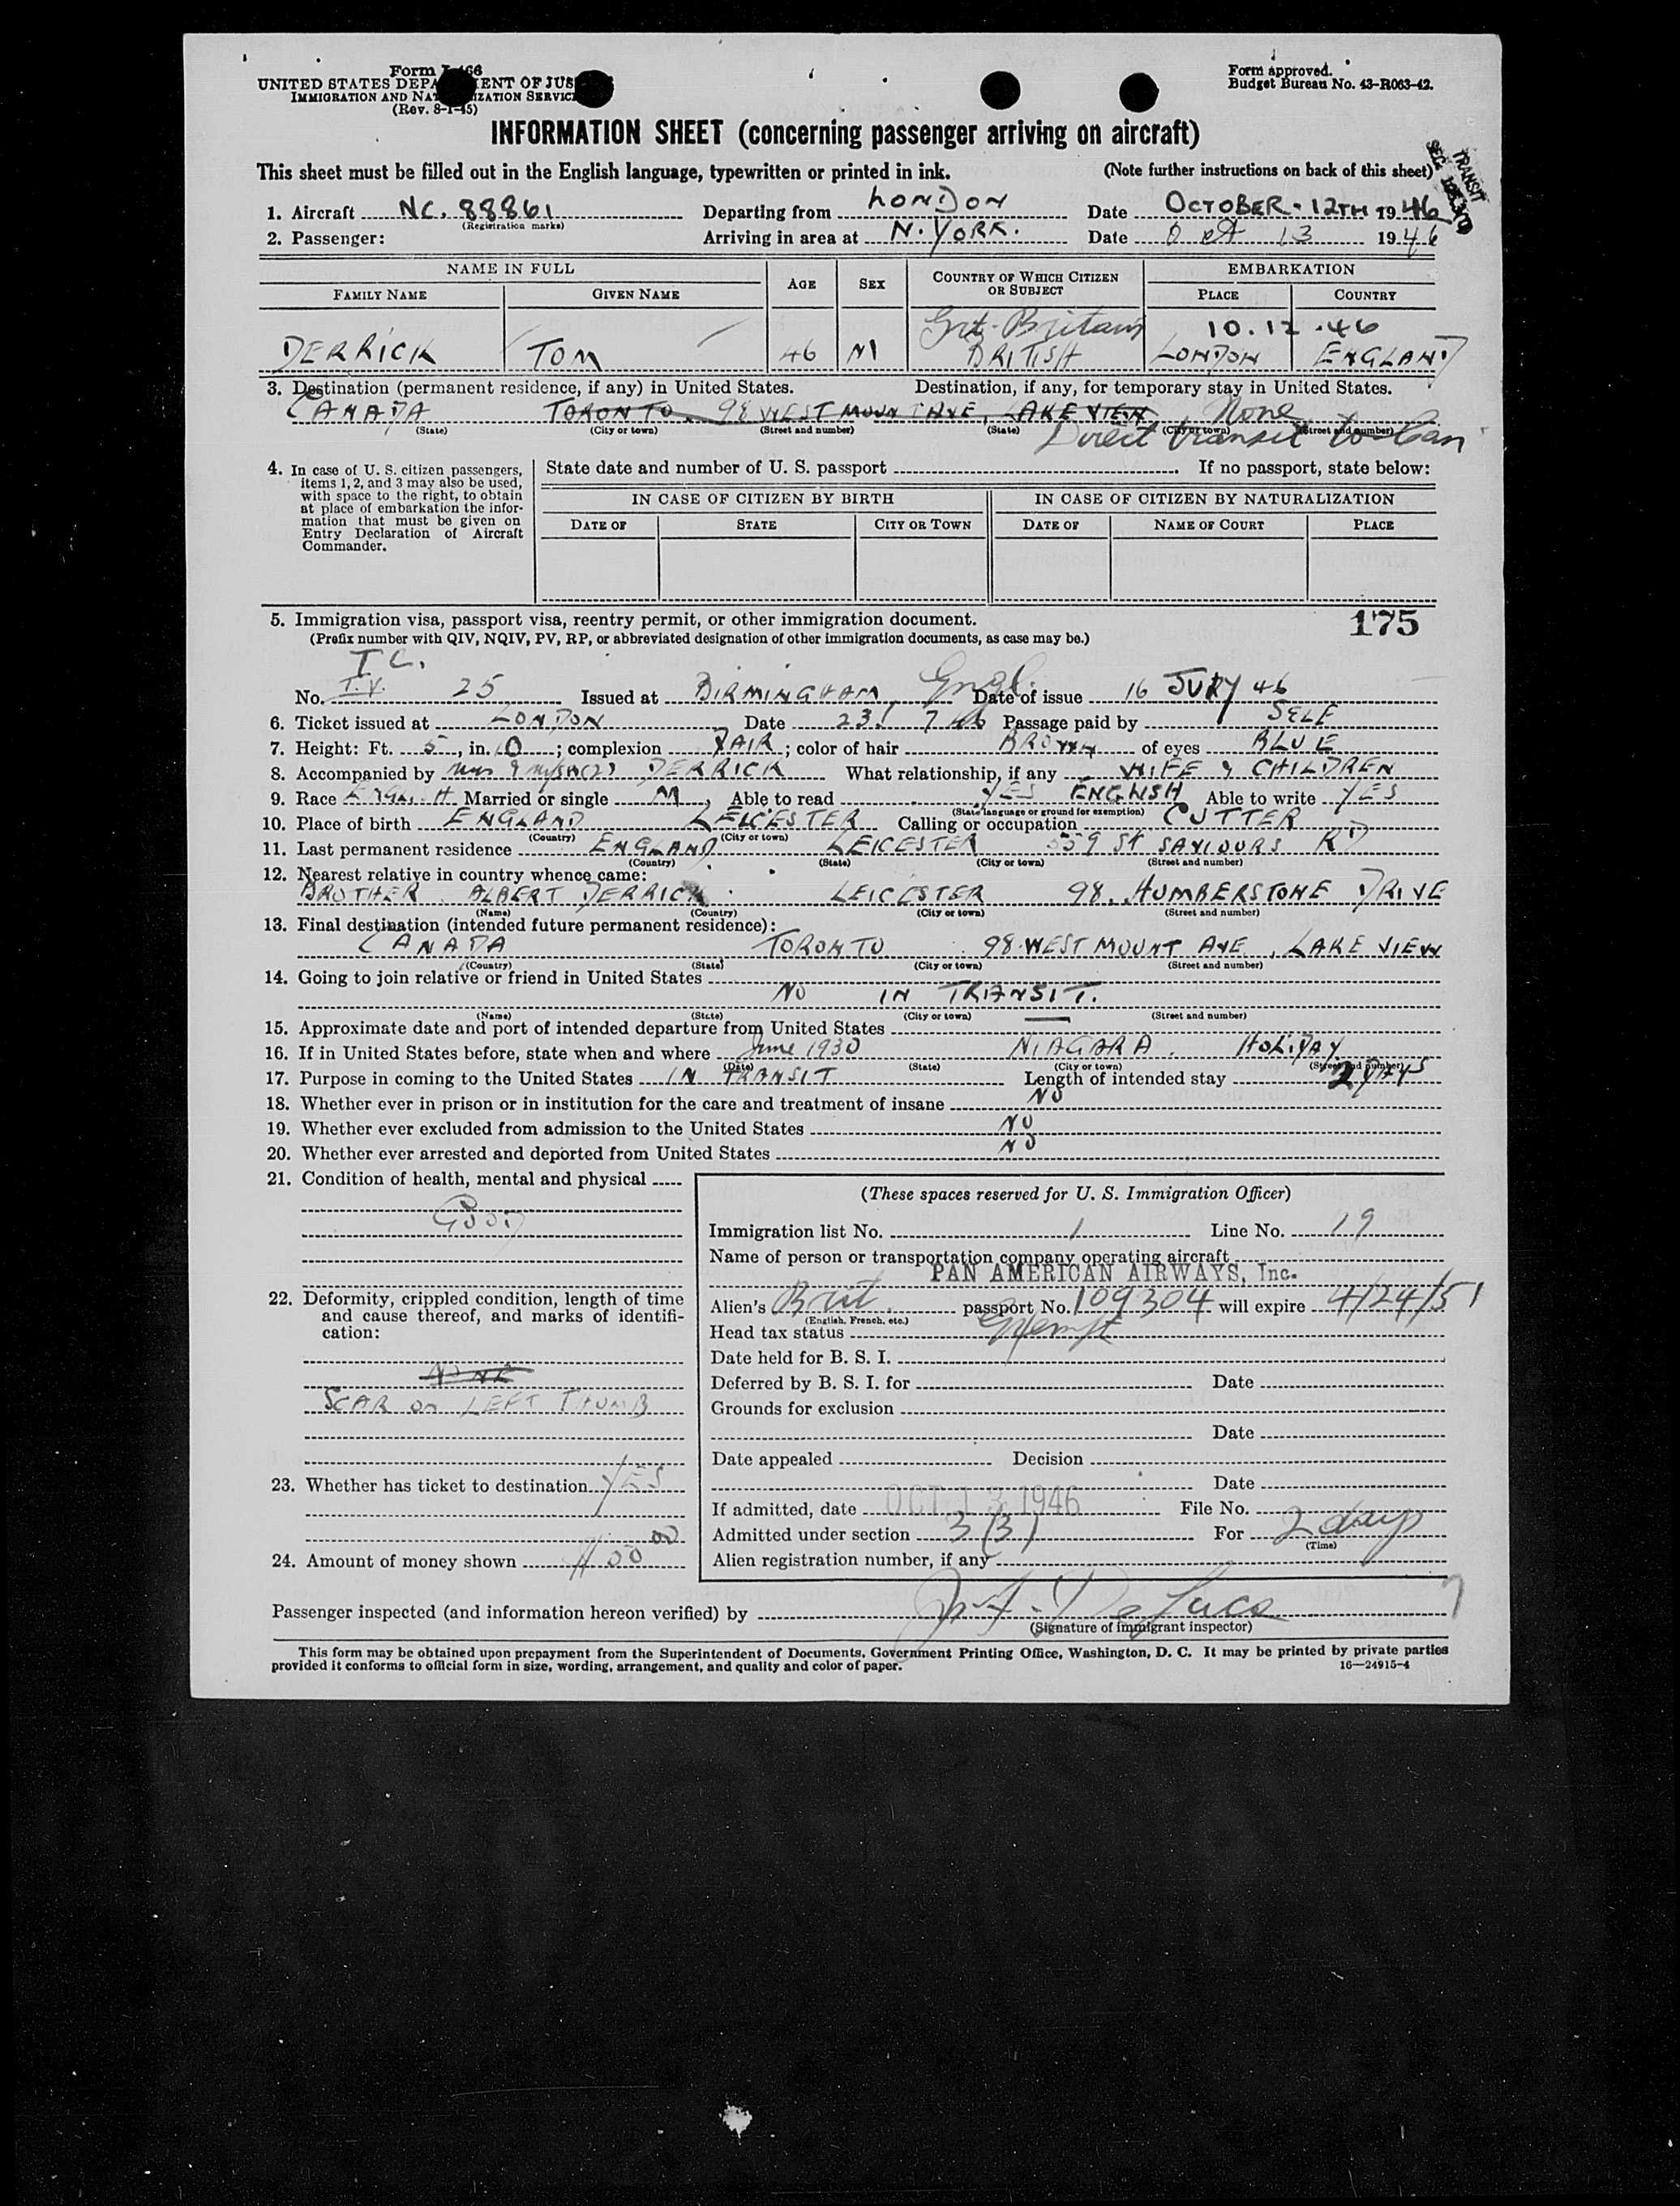 Form I-466
UNITED STATES DEPARTMENT OF JUSTICE
IMMIGRATION AND NATURALIZATION SERVICE
(Rev. 8-1-45)
Form approved.
Budget Bureau No. 43-R063-42.
INFORMATION SHEET (concerning passenger arriving on aircraft)
This sheet must be filled out in the English language, typewritten or printed in ink. (Note further instructions on back of this sheet)
TRANSIT
1. Aircraft NC. 88861 Departing from LONDON Date OCTOBER - 12TH 1946
(Registration marks)
2. Passenger: Arriving in area at N. YORK. Date Oct 13 1946
NAME IN FULL AGE SEX COUNTRY OF WHICH CITIZEN OR SUBJECT EMBARKATION
FAMILY NAME GIVEN NAME PLACE COUNTRY
Grt. Britain 10.12.46
DERRICK TOM 46 M BRITISH LONDON ENGLAND
3. Destination (permanent residence, if any) in United States. Destination, if any, for temporary stay in United States.
CANADA TORONTO. 98 WEST MOUNT AVE, LAKE VIEW None
(State) (City or town) (Street and number) (State) (City or town) (Street and number)
Direct transit to Can
4. In case of U. S. citizen passengers, items 1, 2, and 3 may also be used, with space to the right, to obtain at place of embarkation the information that must be given on Entry Declaration of Aircraft Commander.
State date and number of U. S. passport . If no passport, state below:
IN CASE OF CITIZEN BY BIRTH IN CASE OF CITIZEN BY NATURALIZATION
DATE OF STATE CITY OR TOWN DATE OF NAME OF COURT PLACE
5. Immigration visa, passport visa, reentry permit, or other immigration document. 175
(Prefix number with QIV, NQIV, PV, RP, or abbreviated designation of other immigration documents, as case may be.)
T C.
No. T.V. 25 Issued at BIRMINGHAM Engl. Date of issue 16 JULY 46
6. Ticket issued at LONDON Date 23/ 7 46 Passage paid by SELF
7. Height: Ft. 5, in. 10; complexion FAIR; color of hair BROWN of eyes BLUE
8. Accompanied by Mrs & (2) DERRICK What relationship, if any WIFE & CHILDREN
9. Race ENGLISH Married or single M, Able to read YES ENGLISH Able to write YES
(State language or ground for exemption)
10. Place of birth ENGLAND LEICESTER Calling or occupation CUTTER
(Country) (City or town)
11. Last permanent residence ENGLAND LEICESTER 559 ST SAVIOURS RD
(Country) (State) (City or town) (Street and number)
12. Nearest relative in country whence came:
BROTHER ALBERT DERRICK LEICESTER 98. HUMBERSTONE DRIVE
(Name) (Country) (City or town) (Street and number)
13. Final destination (intended future permanent residence):
CANADA TORONTO 98 WEST MOUNT AVE, LAKE VIEW
(Country) (State) (City or town) (Street and number)
14. Going to join relative or friend in United States
NO IN TRANSIT.
(Name) (State) (City or town) (Street and number)
15. Approximate date and port of intended departure from United States
16. If in United States before, state when and where June 1930 NIAGARA. HOLIDAY
(Date) (State) (City or town) (Street and number)
17. Purpose in coming to the United States IN TRANSIT Length of intended stay 2 DAYS
18. Whether ever in prison or in institution for the care and treatment of insane NO
19. Whether ever excluded from admission to the United States NO
20. Whether ever arrested and deported from United States NO
21. Condition of health, mental and physical
GOOD
22. Deformity, crippled condition, length of time and cause thereof, and marks of identification:
NONE
SCAR on LEFT THUMB
23. Whether has ticket to destination YES
24. Amount of money shown
(These spaces reserved for U. S. Immigration Officer)
Immigration list No. 1 Line No. 19
Name of person or transportation company operating aircraft
PAN AMERICAN AIRWAYS, Inc.
Alien's Brit. passport No. 109304 will expire 4/24/51
(English, French, etc.)
Head tax status Exempt
Date held for B. S. I.
Deferred by B. S. I. for Date
Grounds for exclusion
Date
Date appealed Decision
Date
If admitted, date OCT 13 1946 File No.
Admitted under section 3 (3) For 2 days
(Time)
Alien registration number, if any
Passenger inspected (and information hereon verified) by De Luca
(Signature of immigrant inspector)
This form may be obtained upon prepayment from the Superintendent of Documents, Government Printing Office, Washington, D. C. It may be printed by private parties
provided it conforms to official form in size, wording, arrangement, and quality and color of paper. 16—24915-4